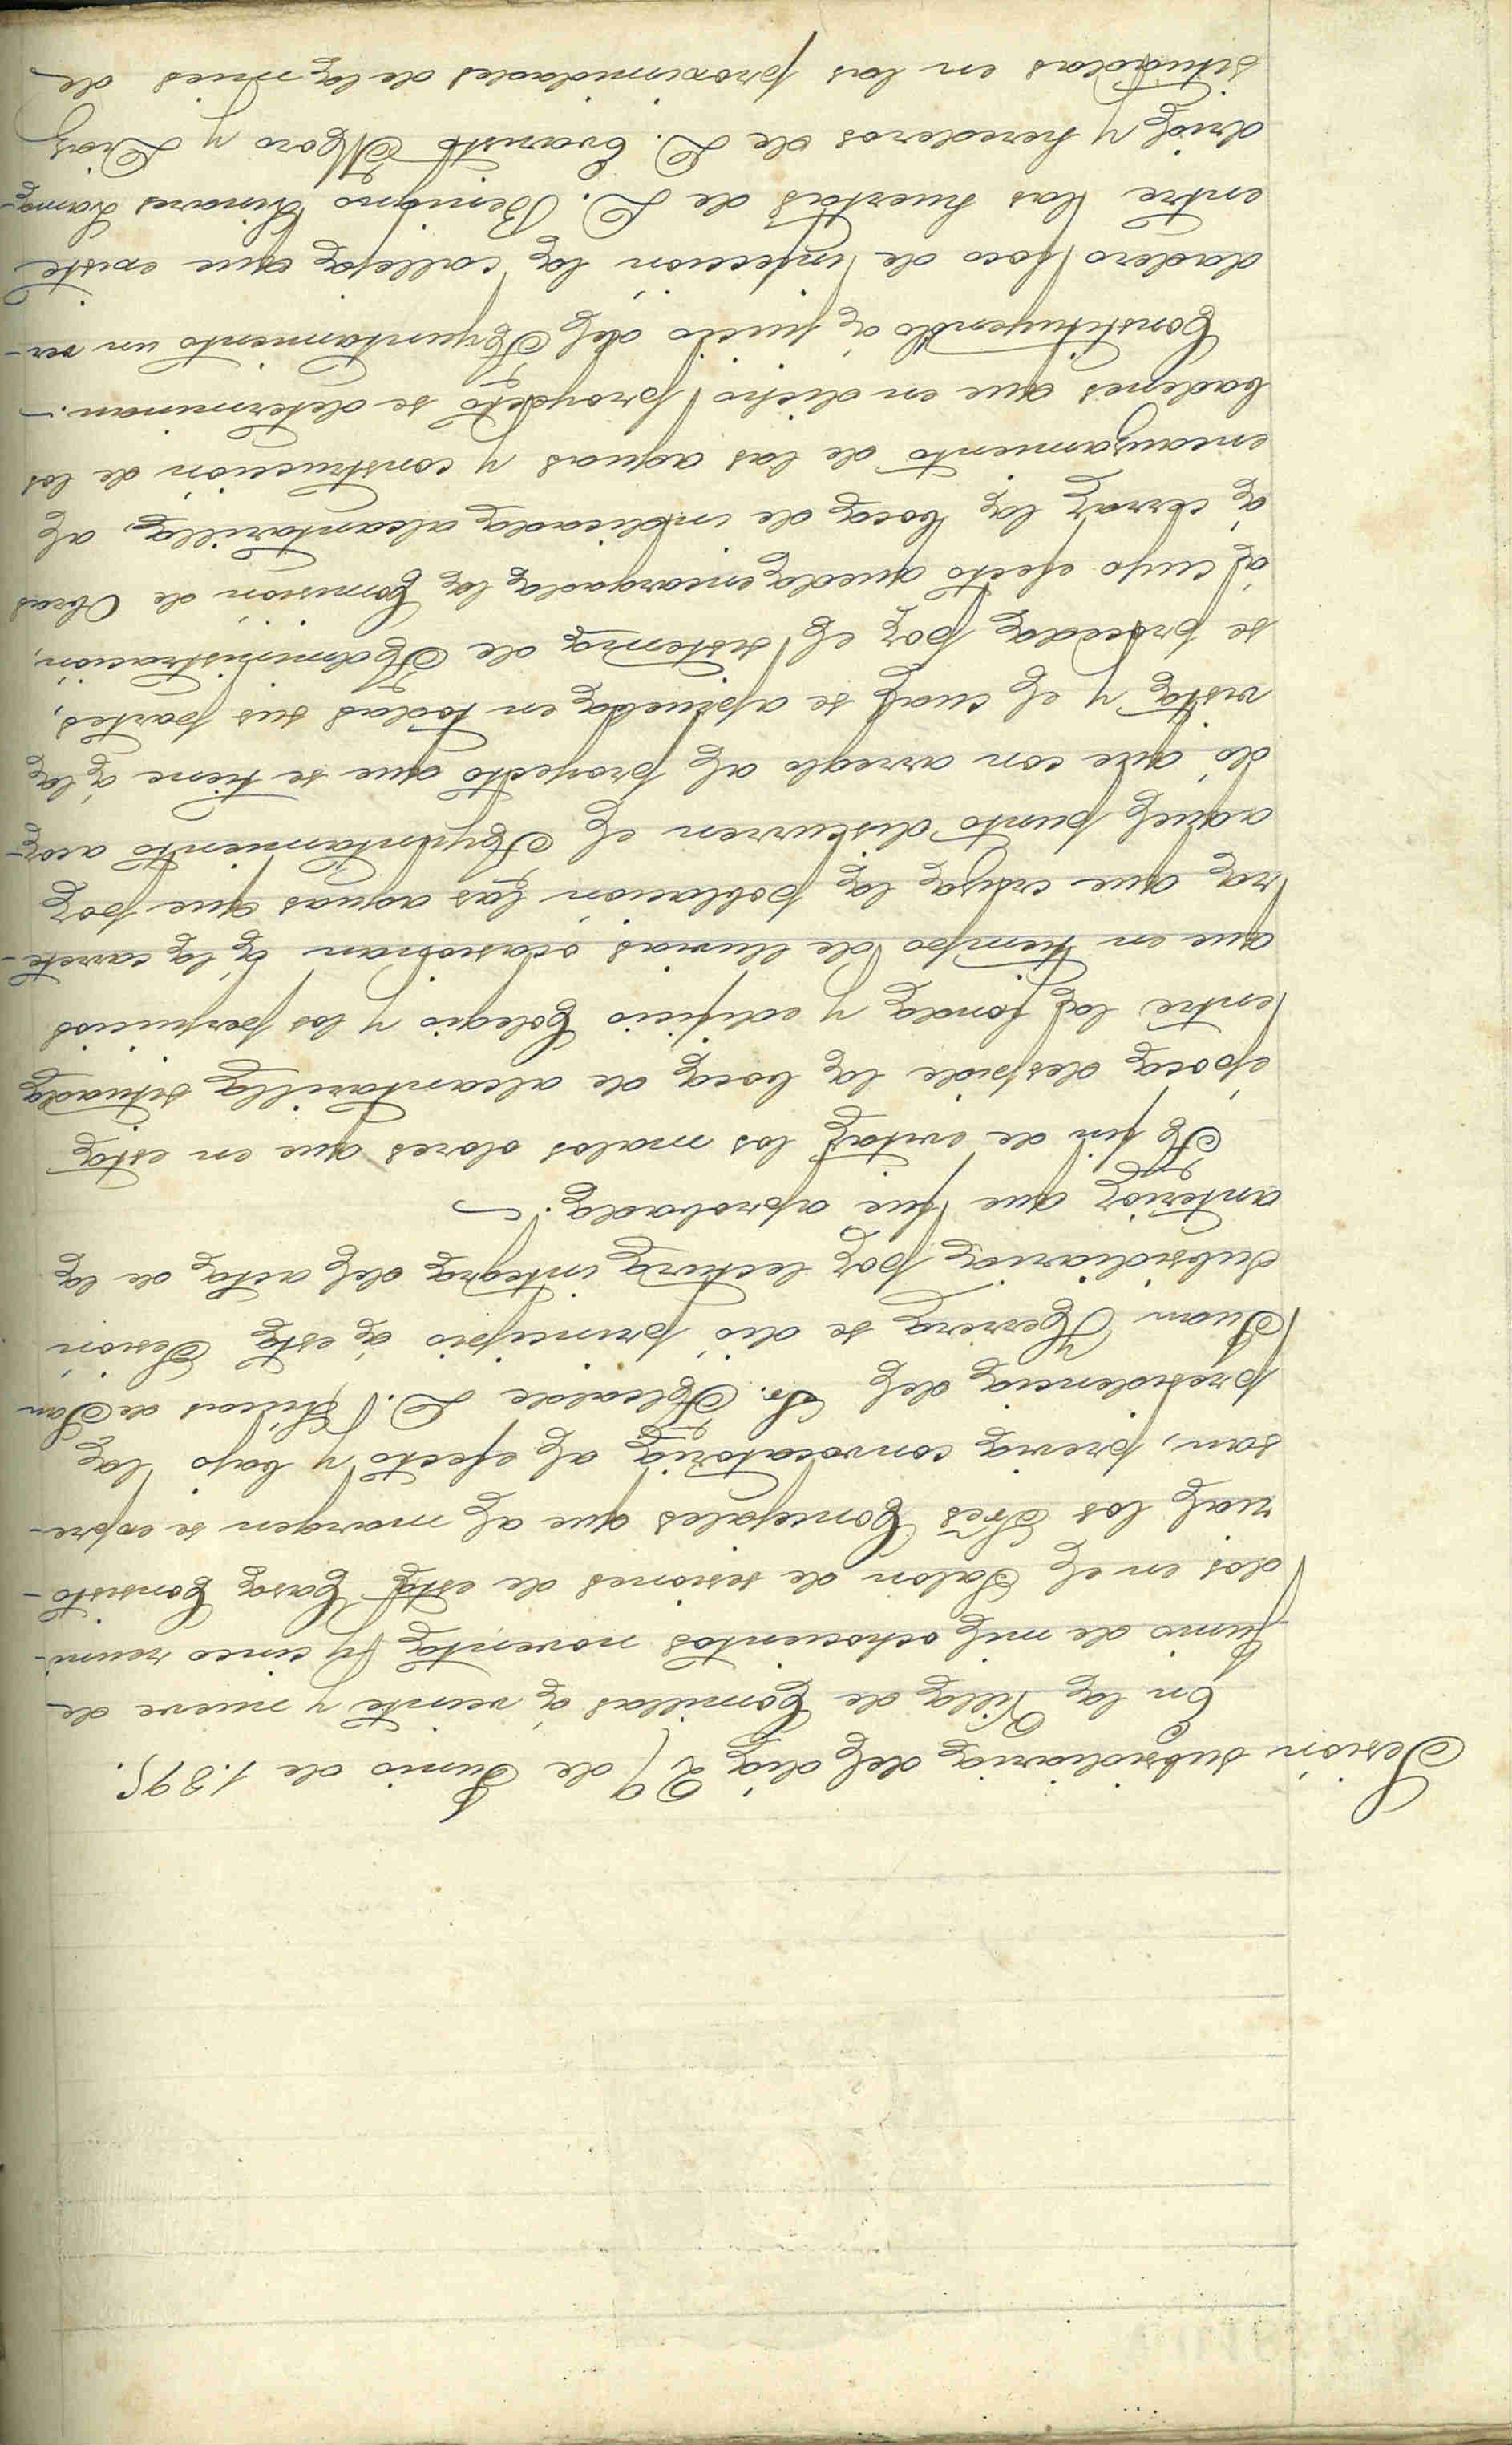 Sesión subsidiaria del día 29 de Junio de 1.895.
En la Villa de Comillas á veinte y nueve de
Junio de mil ochocientos noventa y cinco reuni-
dos en el Salón de sesiones de esta Casa Consisto-
rial los Sres Concejales que al margen se expre-
san, previa convocatoria al efecto y bajo la
presidencia del Sr. Alcalde D. Lucas de San
Juan Herrera se dió principio á esta Sesión
subsidiaria por lectura integra del acta de la
anterior que fue aprobada.
A fin de evitar los malos olores que en esta
época despide la boca de alcantarilla situada
entre la fonda y edificio Colegio y los perjuicios
que en tiempo de lluvias ocasionan á la carrete-
ra que cruza la población las aguas que por
aquel punto discurren el Ayuntamiento acor-
dó que con arreglo al proyecto que se tiene á la
vista y el cual se aprueba en todas sus partes,
se proceda por el sistema de Administración,
á cuyo efecto queda encargada la Comisión de Obras
á cerrar la boca de indicada alcantarilla, al
encauzamiento de las aguas y construcción de los
badenes que en dicho proyecto se determinan.
Constituyendo á juicio del Ayuntamiento un ver-
dadero foco de infección la calleja que existe
entre las huertas de D. Benigno Linares Lama-
drid y herederos de D. Evaristo Moro y Diaz
situadas en las proximidades de la mies de